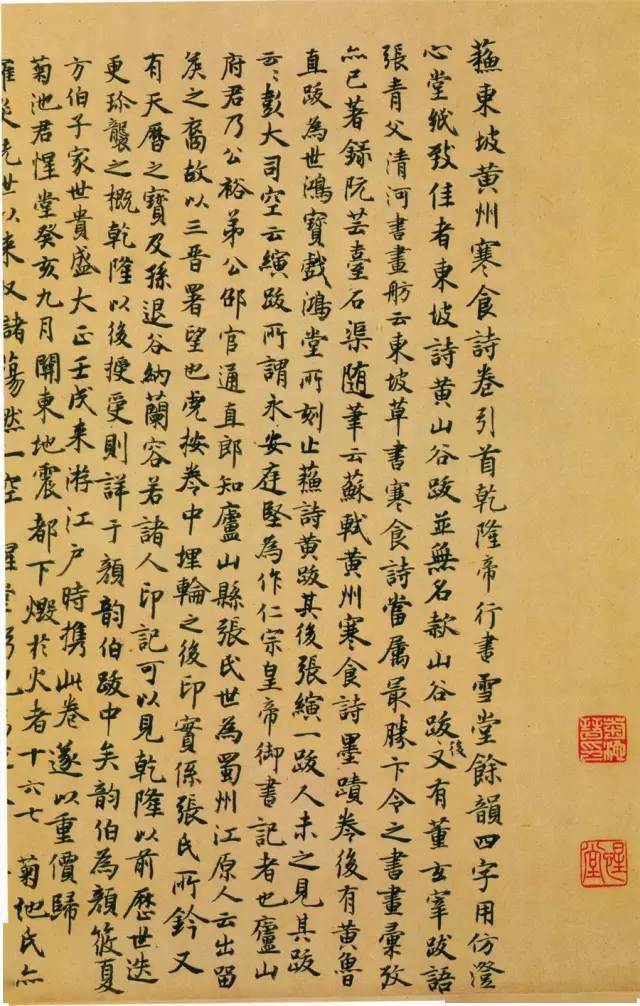 蘓東坡黄州寒食詩卷引首乾隆帝行書雪堂餘韻四字用仿澄
心堂紙致佳者東坡詩黄山谷跋並無名款山谷跋後又有董玄宰跋語
張青父清河書畫舫云東坡草書寒食詩當属最勝卞令之書畫彙攷
亦已著録阮芸臺石渠随筆云蘇軾黄州寒食詩墨蹟卷後有黄魯
直跋為世鴻寶戲鴻堂所刻止蘓詩黄跋其後張縯一跋人未之見其跋
云〻彭大司空云縯跋所謂永安庭堅為作仁宗皇帝御書記者也廬山
府君乃公裕弟公邵官通直郎知廬山縣張氏世為蜀州江原人云出留
矦之裔故以三晋署望也虎按卷中埋輪之後印實係張氏所鈐又
有天曆之寶及孫退谷納蘭容若諸人印記可以見乾隆以前歷世迭
更珍襲之概乾隆以後授受則詳于顔韵伯跋中矣韵伯為顔筱夏
方伯子家世貴盛大正壬戌来游江户時携此卷遂以重價歸
菊池君惺堂癸亥九月關東地震都下燬於火者十六七菊池氏亦
罹災先世以来収諸蕩然一空惺堂
菊池晋印
惺堂